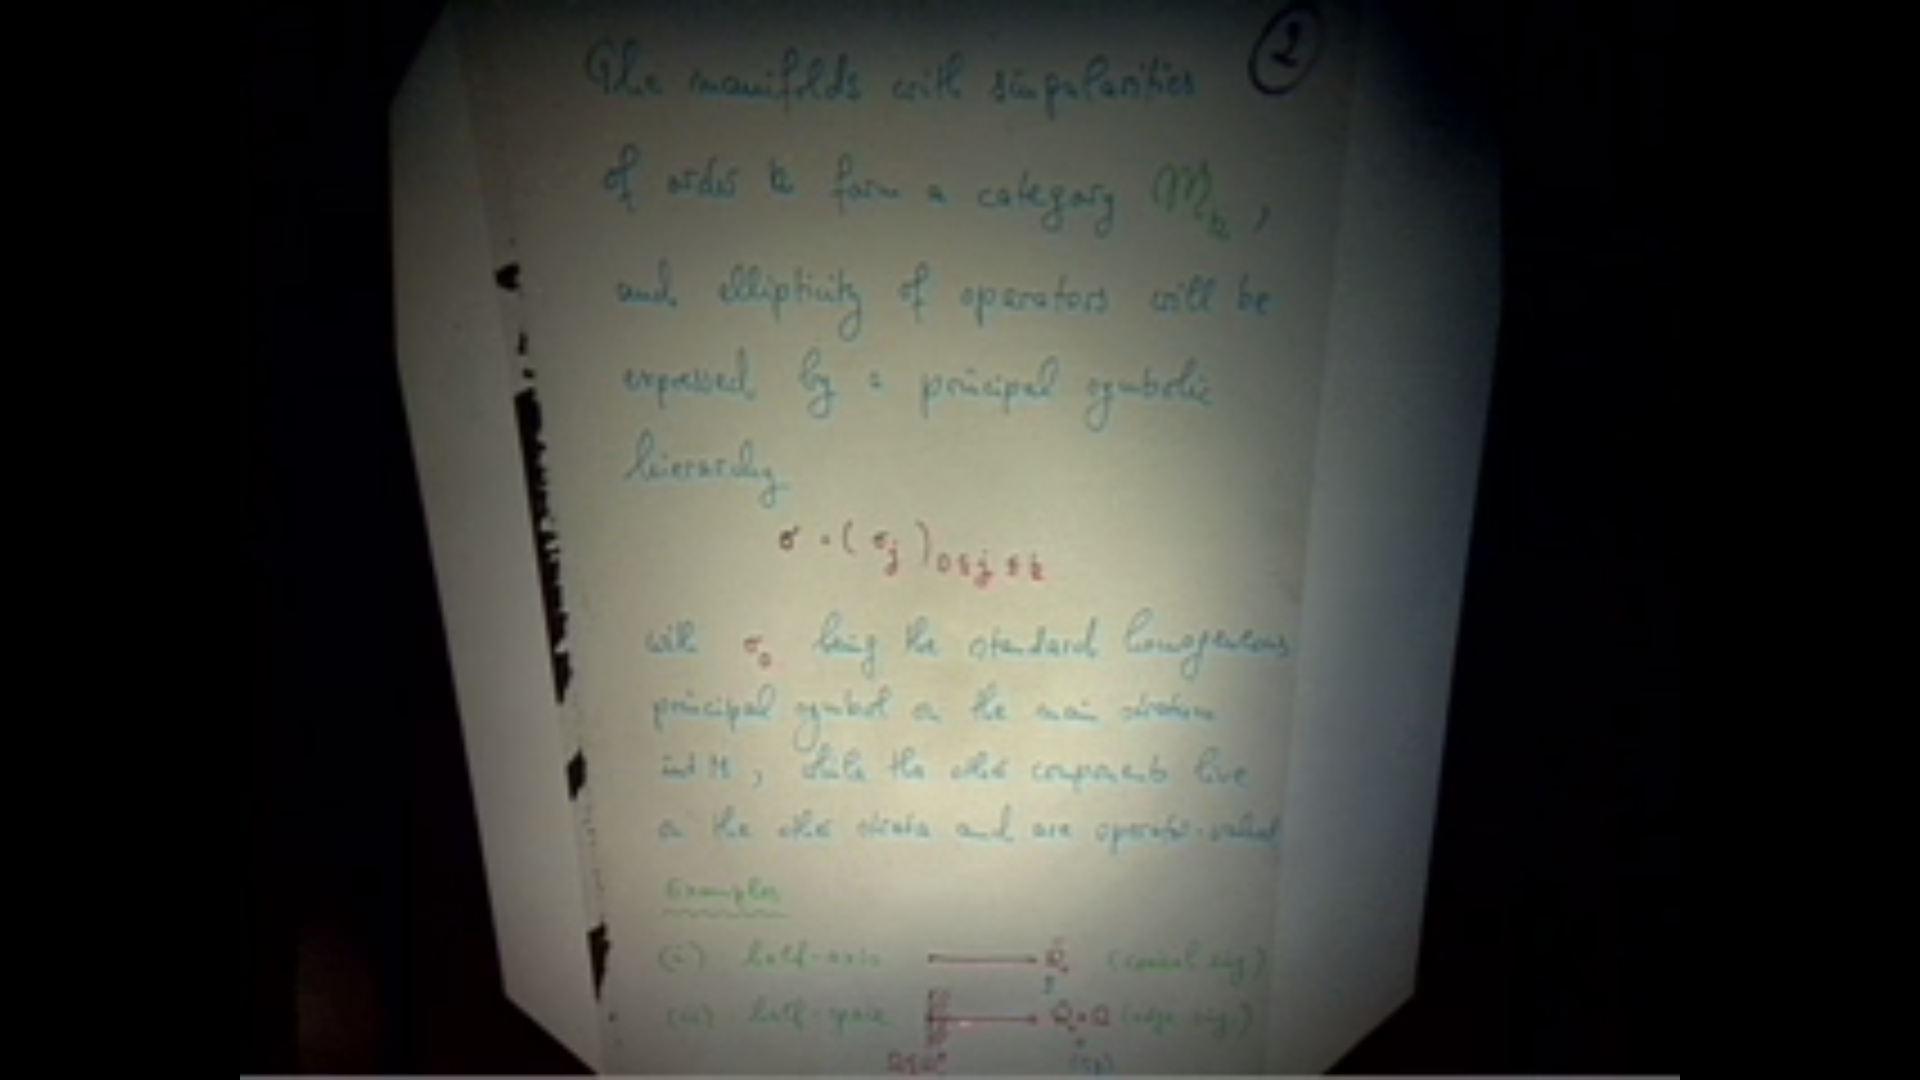 2
The manifolds with singularities
of order k form a category 𝔐_k ,
and ellipticity of operators will be
expressed by a principal symbolic
hierarchy
σ = ( σ_j )_{0 ≤ j ≤ k}
with σ_0 being the standard homogeneous
principal symbol on the main stratum
int M , while the other components live
on the other strata and are operator-valued
Examples
(i) half-axis (conical sing.)
(ii) half-space (edge sing.)